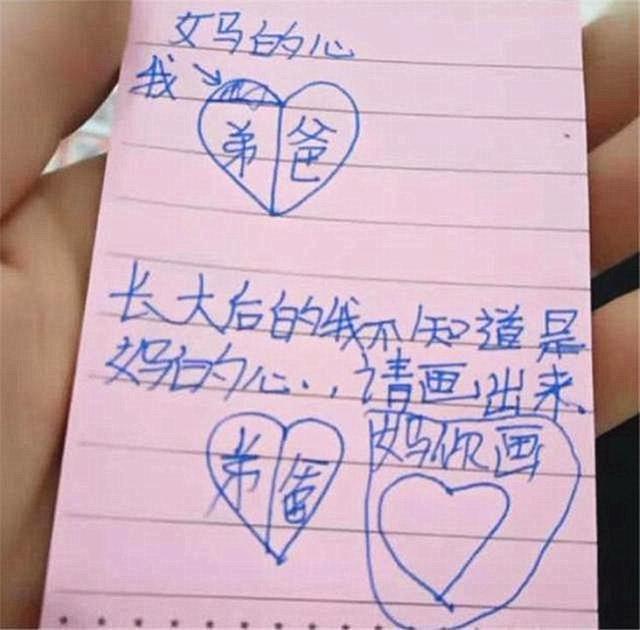 妈的心
我
弟 爸
长大后的我不知道是
妈的心..,请画出来.
妈你画
弟 爸